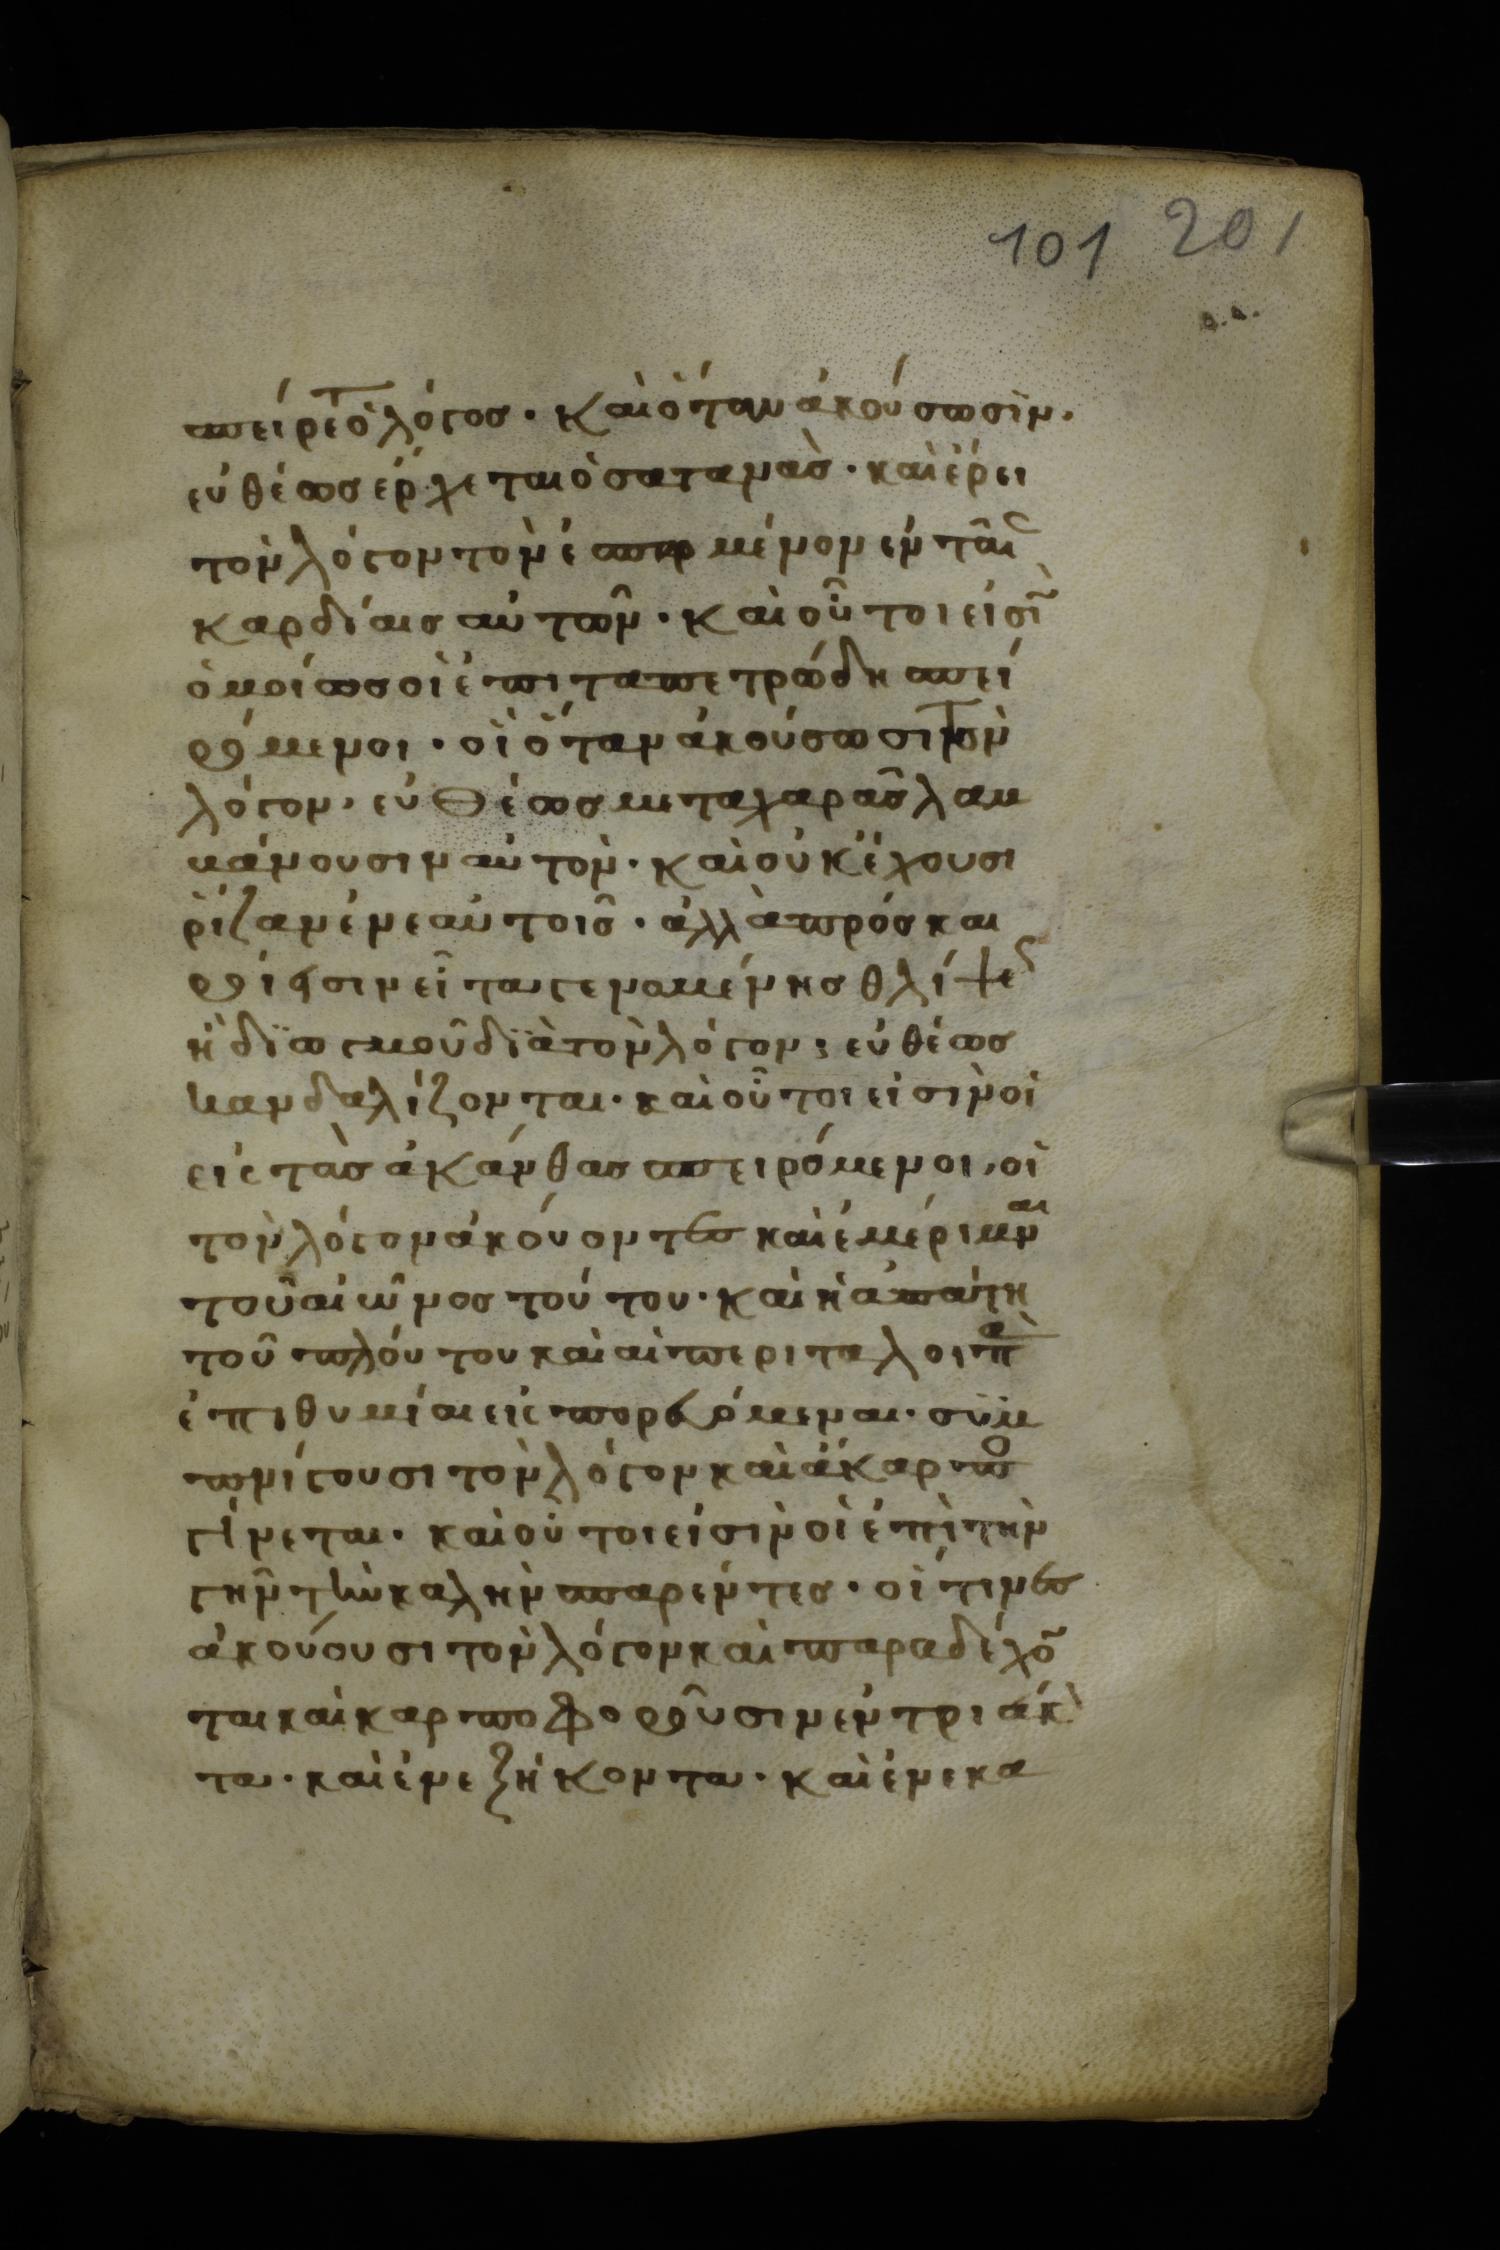 101 201
σπείρετ ὁ λόγος· καὶ ὅταν ἀκούσωσιν,
εὐθέως ἔρχεται ὁ σατανὰς· καὶ ἔρει
τὸν λόγον τὸν ἐσπαρμένον ἐν ταῖς
καρδίαις αὐτῶν· καὶ οὗτοι εἰσῒ
ὁμοίως οἱ ἐπι τα πετρώδη σπει
ρόμενοι· οἳ ὅταν ἀκούσωσι τὸν
λόγον, εὐθέως μετα χαρᾶς λαμ
βάνουσιν αὐτον· καὶ οὐκ ἔχουσι
ῥίζαν ἐν εαὐτοις· ἀλλὰ πρόσκαι
ροί εἰσιν εἶτα γεναμένης θλίψε
ἢ διωγμοῦ διὰ τὸν λόγον, εὐθέως
σκανδαλίζονται· καὶ οὗτοι εἰσὶν οἱ
εἰς τὰς ἀκάνθας σπειρόμενοι, οἱ
τὸν λόγον ἀκούοντες καὶ ἑ μέριμναι
τοῦ αἰῶνος τούτου· καὶ ἡ ἀπάτη
τοῦ πλούτου καὶ αἱ περι τα λοιπὰ
ἐπιθυμίαι εἰσπορευόμεναι· συμ
πνίγουσι τὸν λόγον καὶ ἄκαρπο
γίνεται· καὶ οὗτοι εἰσὶν οἱ ἐπὶ τὴν
γῆν τὴν καλὴν σπαρέντες· οἵτινες
ἀκούουσι τὸν λόγον καὶ παραδέχο
ται καὶ καρποφοροῦσιν ἐν τριάκ
τα· καὶ ἐν εξήκοντα· καὶ ἐν εκα